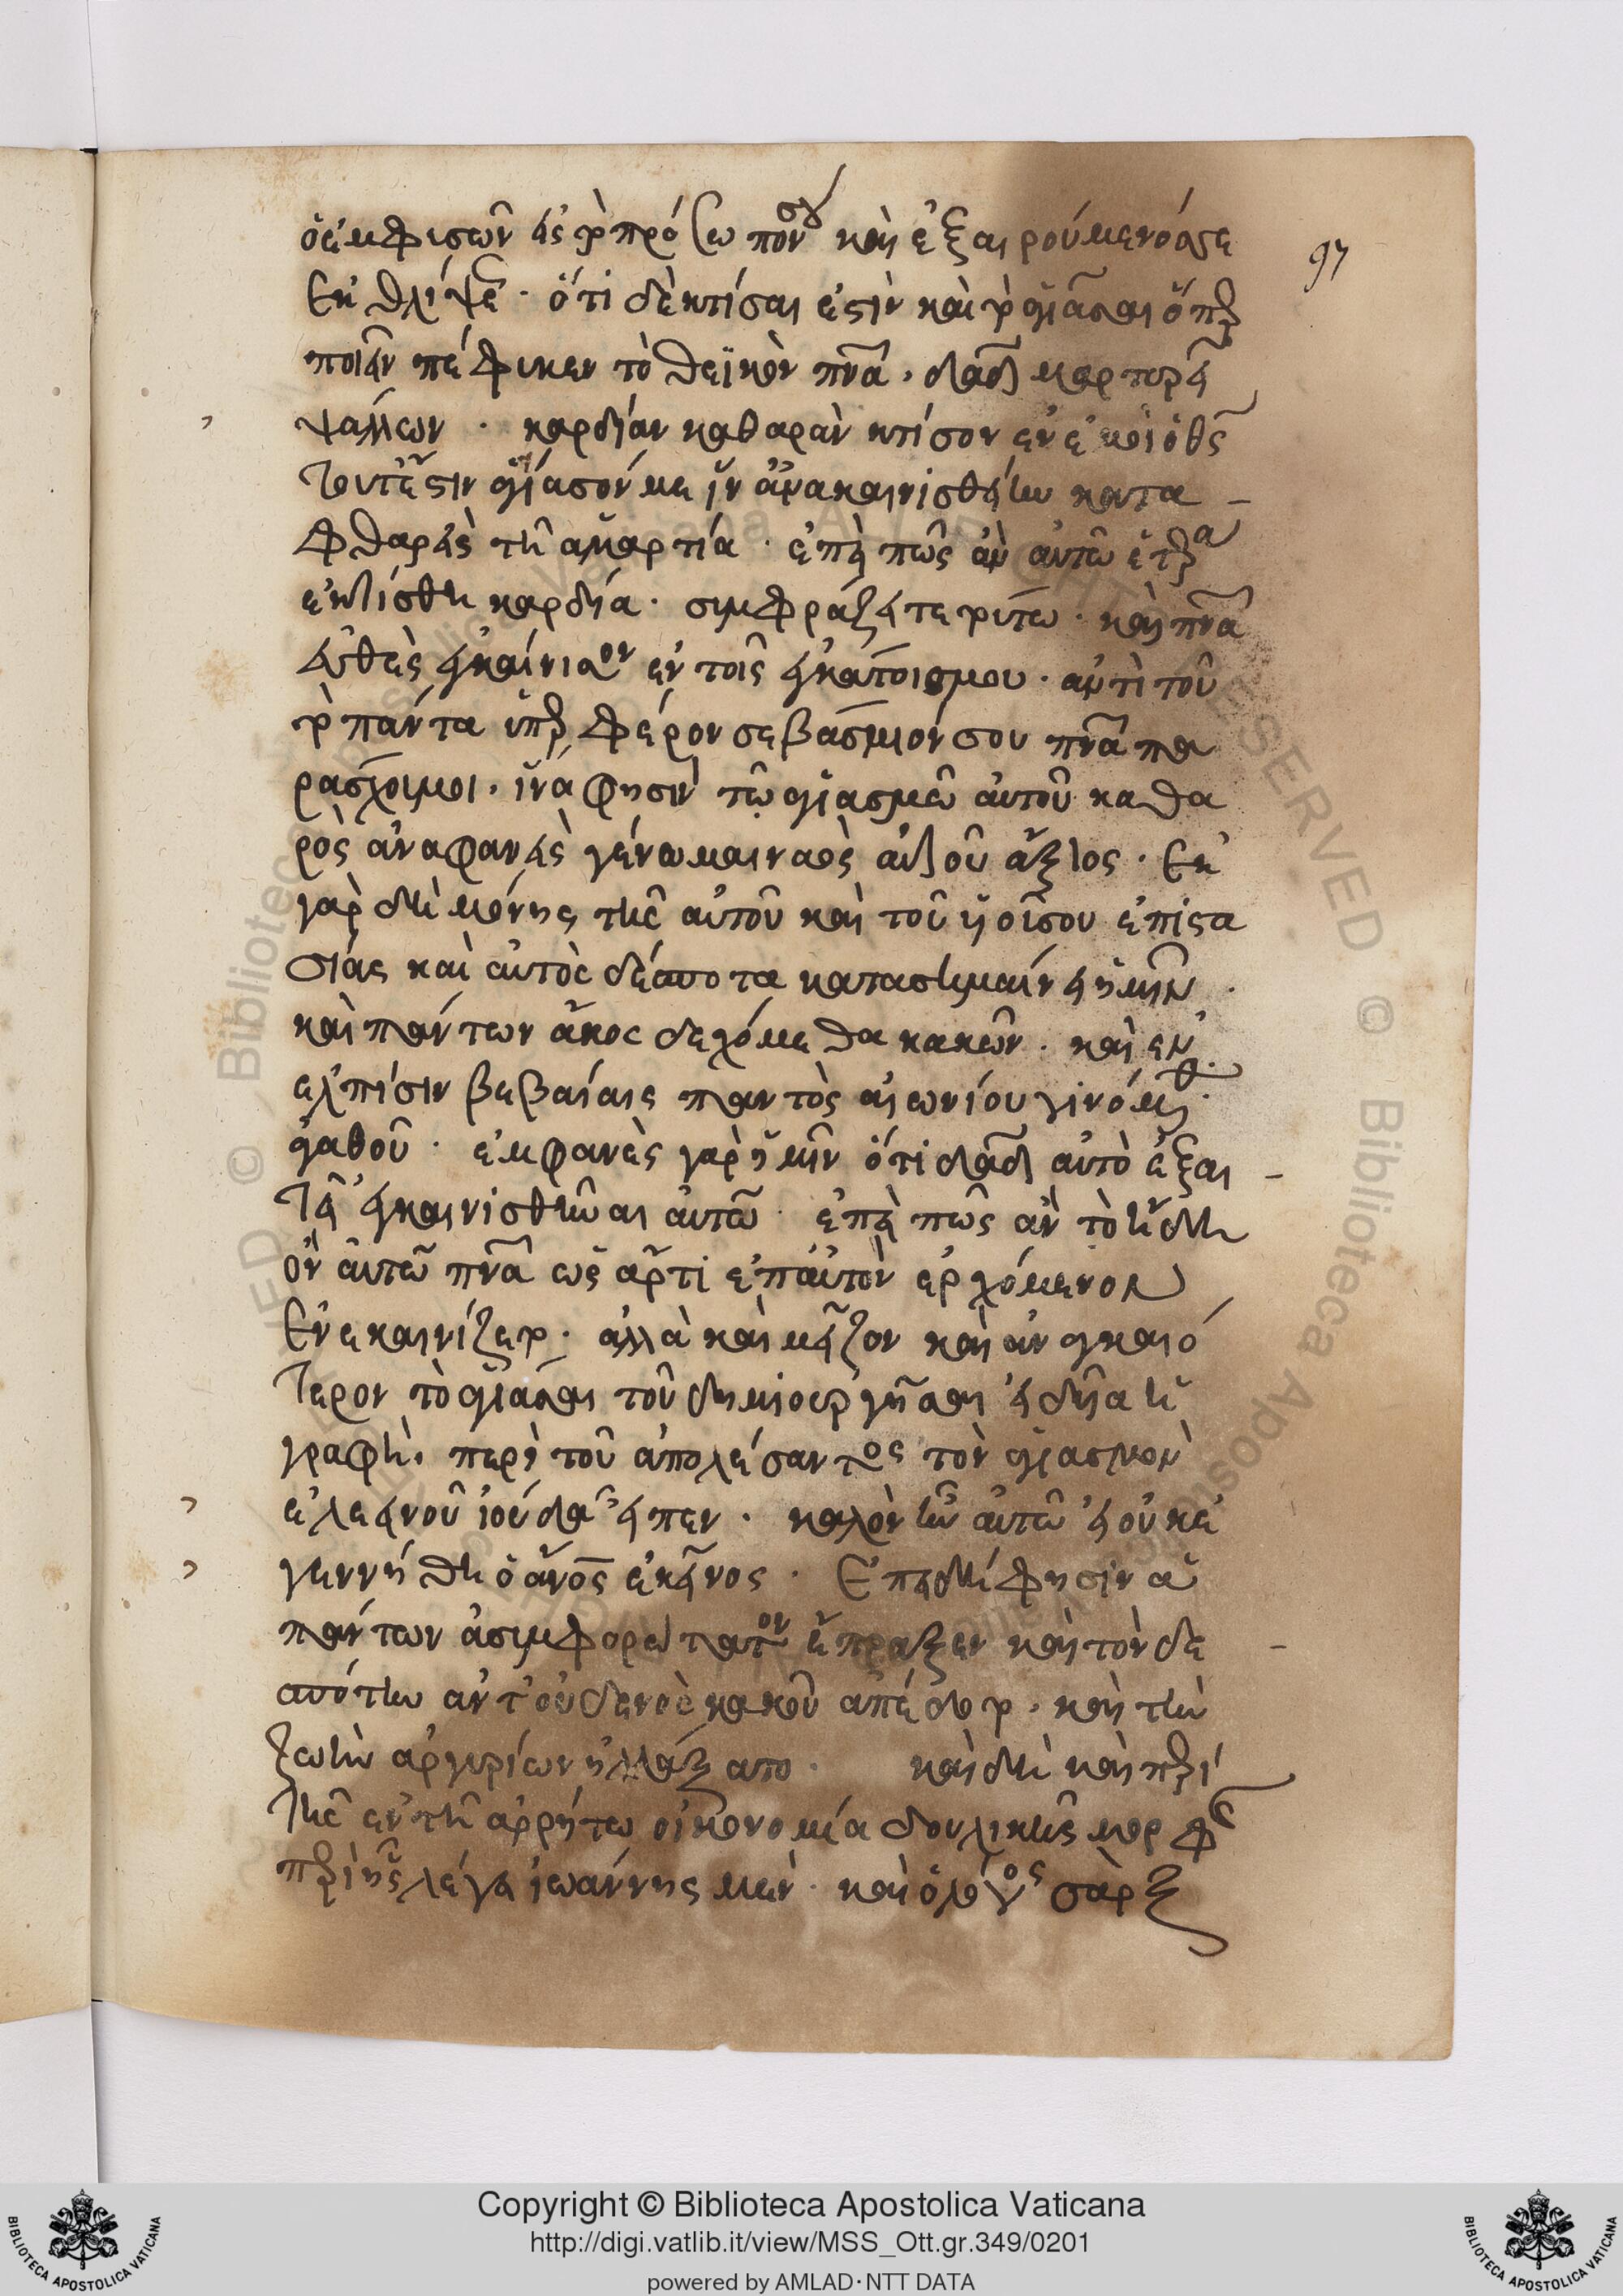 ὁ ἐμφυσῶν εἰς τὸ πρόσωπόν σου καὶ ἐξαιρούμενός σε
ἐκ θλίψε. ὅτι δὲ κτίσαι ἐστὶν καὶ τὸ ἁγιάσαι ὅπερ
ποιεῖν πέφυκεν τὸ θεϊκὸν πνα, δαδ μαρτυρεῖ
ψάλλων. καρδίαν καθαρὰν κτίσον ἐν ἐμοὶ ὁ θς
τουτέστιν ἁγίασόν με ἵν ἀνακαινισθείην κατα-
φθαρεὶς τῆ ἁμαρτία. ἐπεὶ πῶς ἂν αὐτῶ ἑτέρα
ἐκτίσθη καρδία. συμφράζει τε τούτω. καὶ πνα
εὐθὲς ἐγκαίνισον ἐν τοῖς ἐγκάτοις μου. ἀντὶ τοῦ
τὸ πάντα ὑπερφέρον σεβάσμιόν σου πνα πα
ράσχοιμοι. ἵνα φησὶν τῶ ἁγιασμῶ αὐτοῦ καθα
ρὸς ἀναφανεὶς γένωμαι ναὸς αὐτοῦ ἄξιος. ἐκ
γὰρ δὴ μόνης τῆς αὐτοῦ καὶ τοῦ υἱοῦ σου ἐπιστα
σίας καὶ αὐτὸς δέσποτα κατασημαίνει ἡμῖν.
καὶ πάντων ἄκος δεχόμεθα κακῶν. καὶ ἐν
ἐλπίσιν βεβαίαις παντὸς αἰωνίου γινόμεθα
ἀγαθοῦ. ἐμφανὲς γὰρ ἡμῖν ὅτι δαδ αὐτὸ ἐξαι-
τεῖ ἐγκαινισθῆναι αὐτῶ. ἐπεὶ πῶς ἂν τὸ ἤδη
ὂν αὐτῶ πνα ὡς ἄρτι ἐπ αὐτὸν ἐρχόμενον
ἐνεκαινίζετο. ἀλλὰ καὶ μεῖζον καὶ ἀναγκαιό
τερον τὸ ἁγιάσαι τοῦ δημιουργῆσαι εἰδυῖα ἡ
γραφὴ. περὶ τοῦ ἀπολέσαντος τὸν ἁγιασμὸν
ἐλεεινοῦ ἰούδα εἶπεν. καλὸν ἦν αὐτῶ εἰ οὐκ ἐ
γεννήθη ὁ ἄνος ἐκεῖνος. Ἐπειδὴ φησὶν ἁ
πάντων ἀσυμφορώτατον ἔπραξεν καὶ τὸν δε
σπότην ἀντ οὐδενὸς κακοῦ ἀπέδοτο. καὶ τὴν
ζωὴν ἀργυρίων ἠλλάξατο. καὶ δὴ καὶ περὶ
τῆς ἐν τῆ ἀρρήτω οἰκονομία δουλικῆς μορφῆς
περὶ ἧς λέγει ἰωάννης μὲν. καὶ ὁ λόγος σὰρξ
97
Copyright © Biblioteca Apostolica Vaticana
http://digi.vatlib.it/view/MSS_Ott.gr.349/0201
powered by AMLAD·NTT DATA
BIBLIOTECA APOSTOLICA VATICANA
BIBLIOTECA APOSTOLICA VATICANA